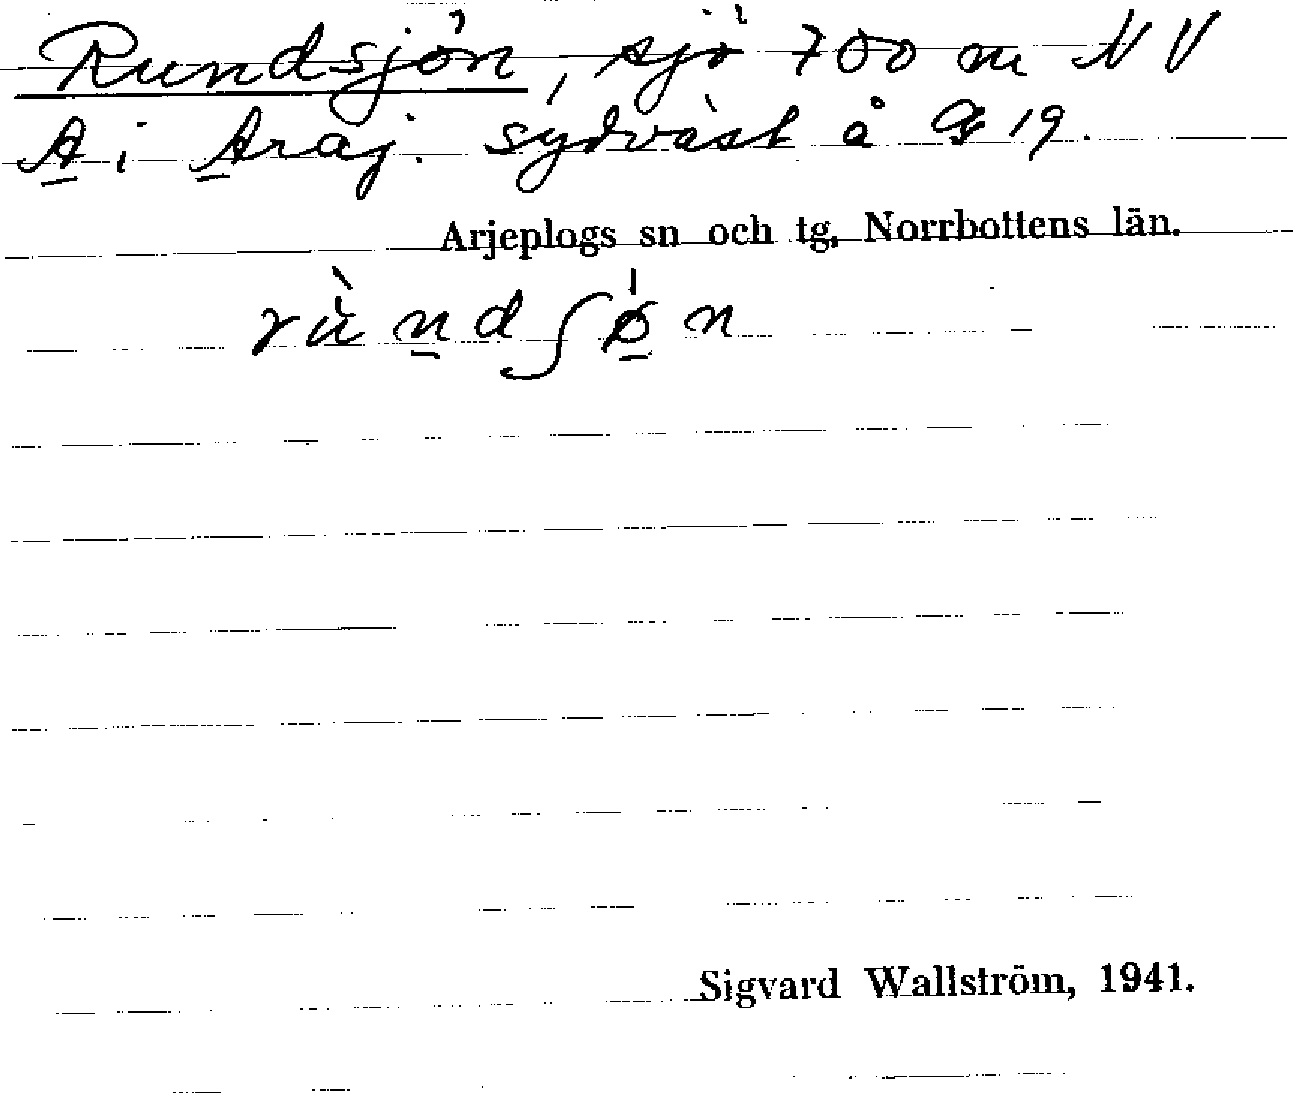 Rundsjön, sjö 700 m NV
A i Araj. sydväst å Gs 19.
Arjeplogs sn och tg, Norrbottens län.
rùndʃø̀n
Sigvard Wallström, 1941.